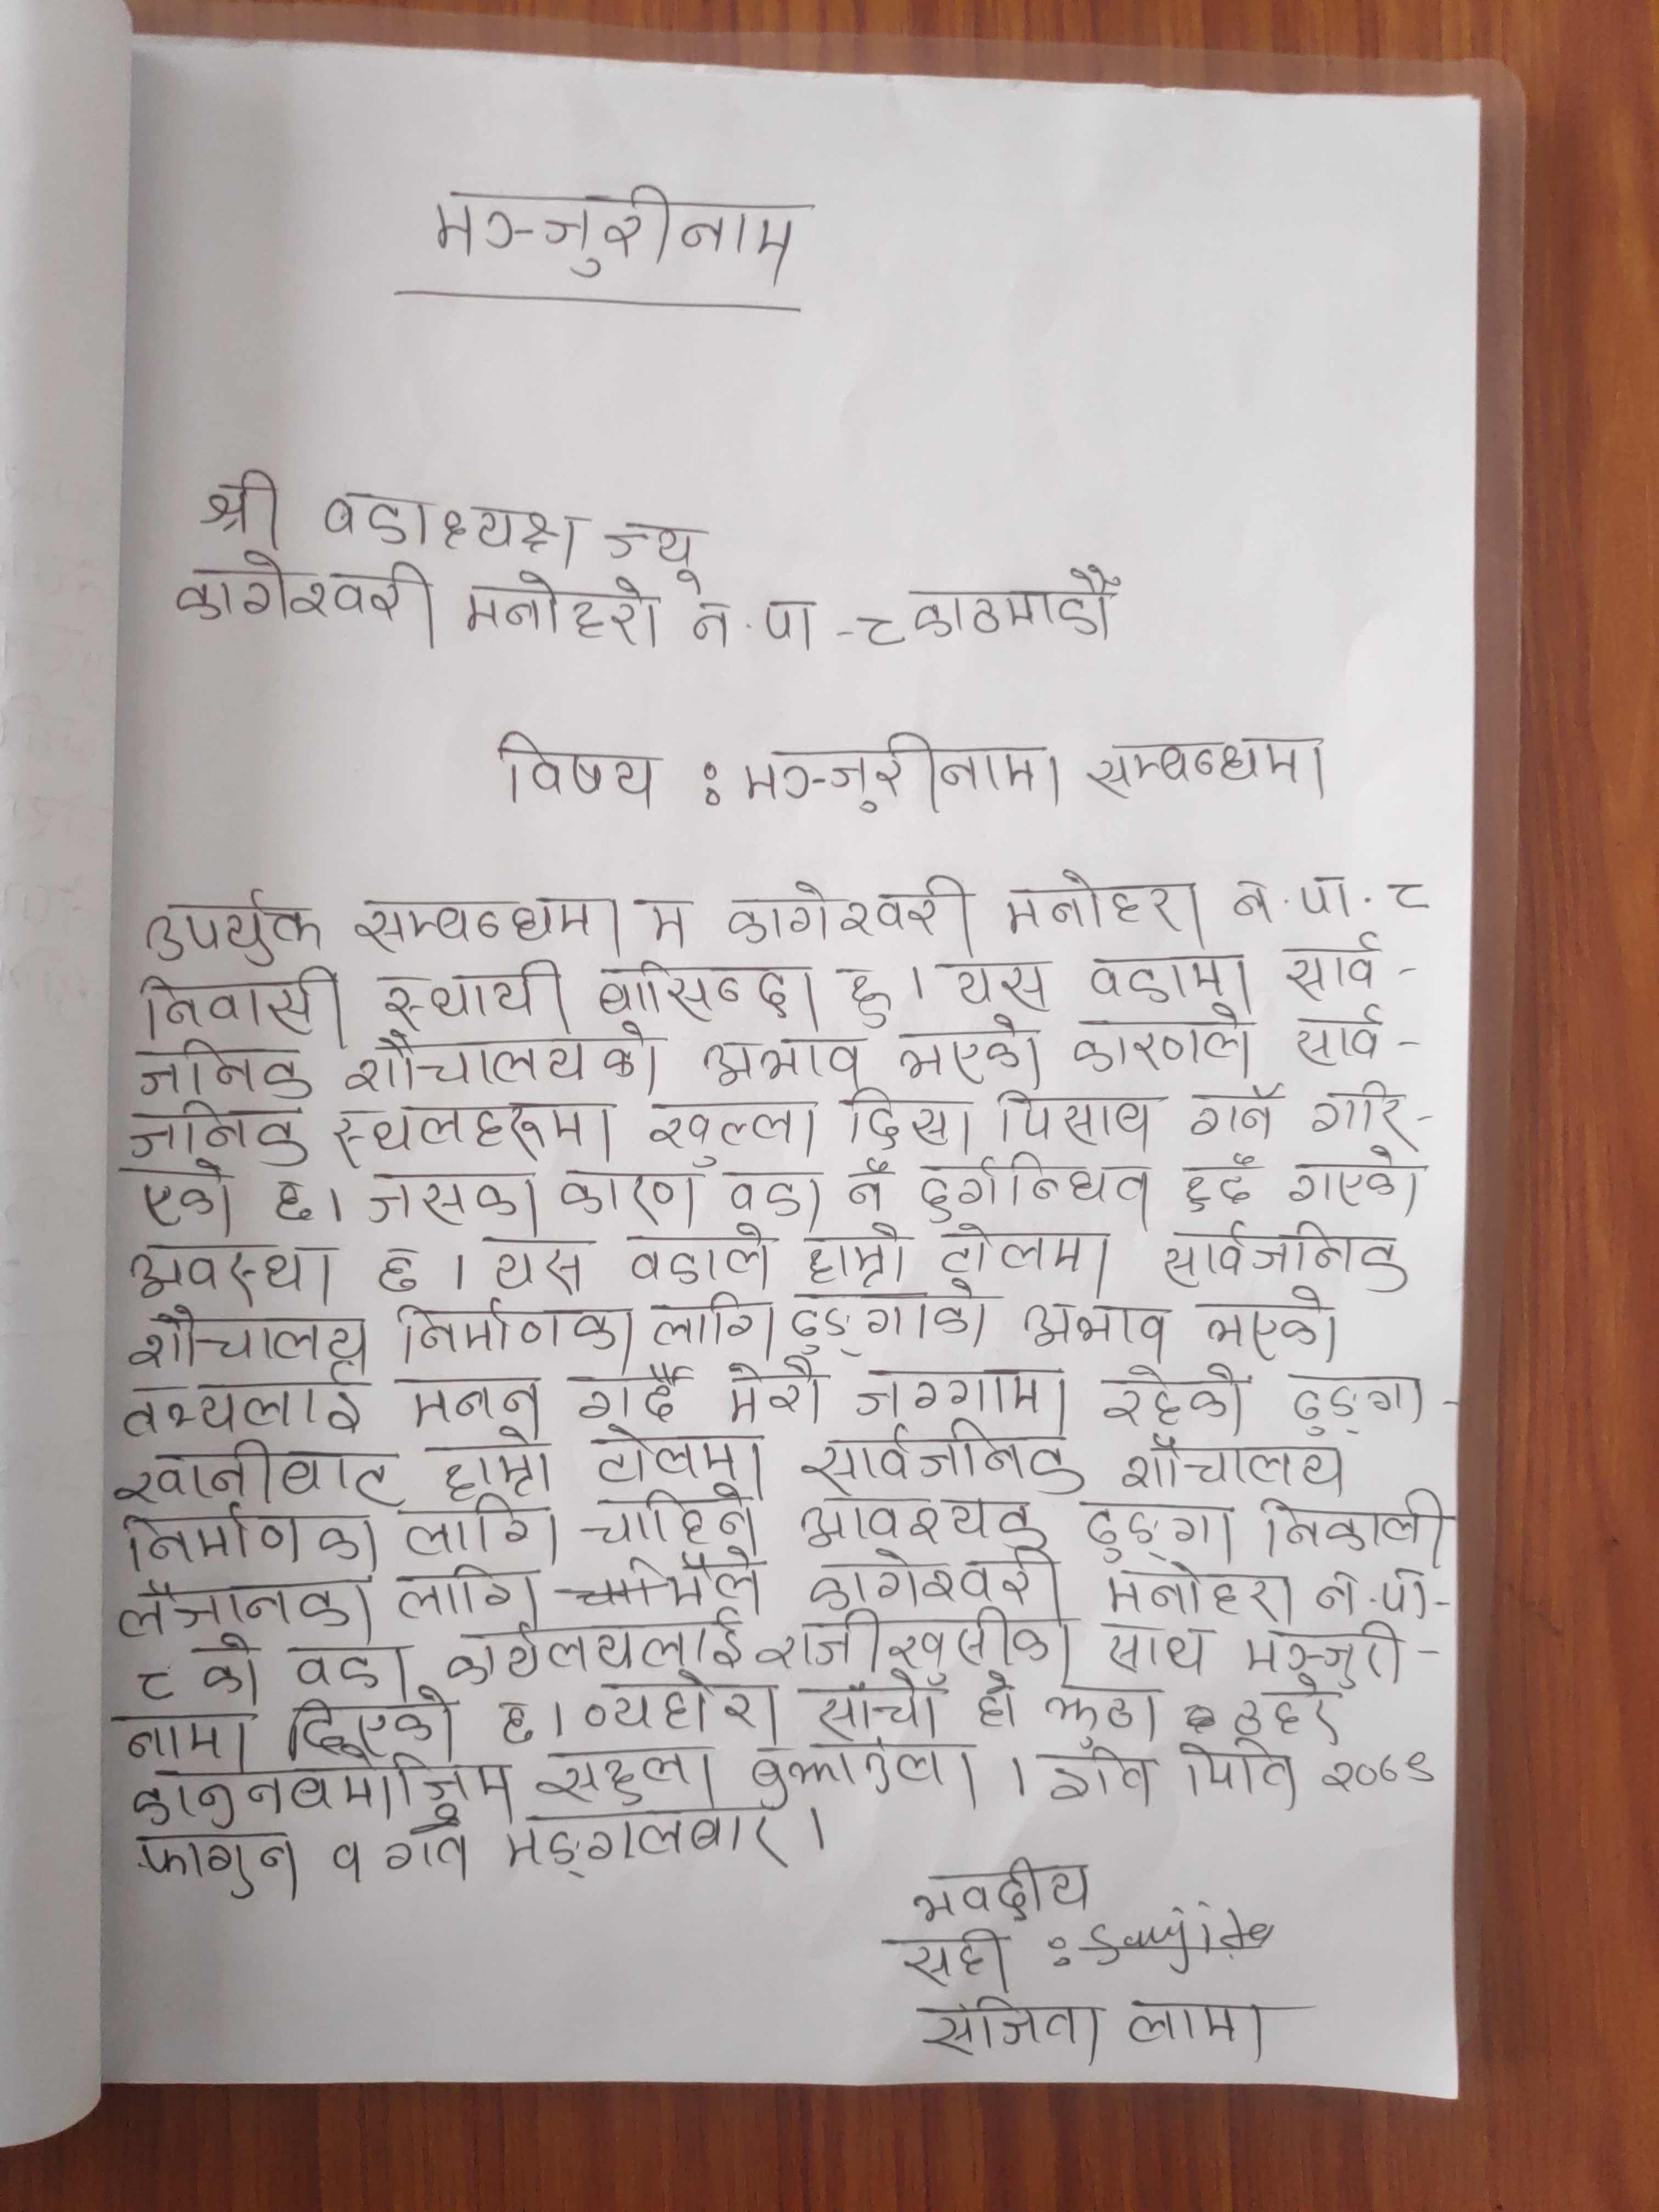 मञ्जुरीनाम
श्री वडाध्यक्ष ज्यू
कागेश्वरी मनोहरो न.पा -८ काठमाडौँ
विषय : मञ्जुरीनामा सम्बन्धमा
उपर्युक्त सम्बन्धमा म कागेश्वरी मनोहरा न.पा. ८
निवासी स्थायी बासिन्दा हु । यस वडामा सार्व-
जनिक शौचालयको अभाव भएको कारणले सार्व-
जनिक स्थलहरूमा खुल्ला दिसा पिसाब गर्ने गरि-
एको छ । जसका कारण वडा नै दुर्गन्धित हुदै गएको
अवस्था छ । यस वडाले हाम्रो टोलमा सार्वजनिक
शौचालय निर्माणका लागि ढुङ्गाको अभाव भएको
तथ्यलाई मनन गर्दै मेरो जग्गामा रहेको ढुङ्गा-
खानीबाट हाम्रो टोलमा सार्वजनिक शौचालय
निर्माणका लागि चाहिने आवश्यक ढुङ्गा निकाली
लैजानका लागि मैले कागेश्वरी मनोहरा न.पा-
८ को वडा कार्यलयलाई राजीखुसीका साथ मञ्जुरी-
नामा दिएको छ । व्यहोरा साँचो हो झुठा ठहरे
कानुनबमोजिम सहुला बुझाउँला । । इति मिति २०७९
फागुन १ गते मङ्गलबार ।
भवदीय
सही : Sanjita
संजिता लामा